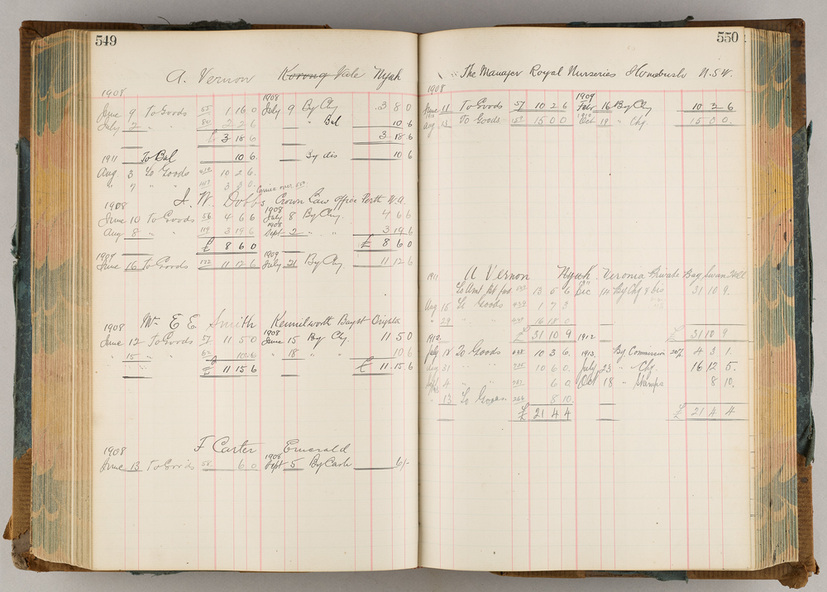 549
A. Vernon Korong Vale Nyah
1908
June 9 To Goods 55 1 16 0 1908 July 9 By Chq 3 8 0
July 2 " " 2 2 6 " Bal 10 6
£ 3 18 6 3 18 6
1911 To Bal 10 6 By dis 10 6
Aug 3 To Goods 10 2 6
" 7 " " 3 8 0
1908 J. W. Dobbs Crown Law Offices Perth W.A.
June 10 To Goods 56 4 6 6 1908 July 8 By Chq 4 6 6
Aug 8 " " 3 19 6 1908 Sept 2 " " 3 19 6
£ 8 6 0 £ 8 6 0
June 16 To Goods 11 12 6 1909 July 21 By Chq 11 12 6
1908 Mr E E Smith Kennilworth Bay St Brighton
June 12 To Goods 57 11 5 0 1908 June 15 By Chq 11 5 0
" 15 " " 10 6 " 18 " " 10 6
£ 11 15 6 £ 11 15 6
1908 F Carter Emerald
June 13 To Goods 58 6 0 1908 Sept 5 By Cash 6/-
550
The Manager Royal Nurseries Homebush N.S.W.
1908
June 11 To Goods 57 10 2 6 1909 Febr 16 By Chq 10 2 6
Aug 12 To Goods 15 0 0 Oct 19 " Chq 15 0 0
1911 A Vernon Nyah Veronia Private Bag Swan Hill
13 5 6 Dec 14 By Chq & dis 31 10 9
Aug 16 To Goods 1 7 3
" 29 " 16 18 0
£ 31 10 9 £ 31 10 9
1912 1912
July 18 To Goods 10 3 6 1912 By Commission 20% 4 3 1
" 31 " " 10 6 0 July 23 " Chq 16 12 5
" 4 " " 6 0 Oct 18 " Stamps 8 10
" 13 To Goods 8 10
£ 21 4 4 £ 21 4 4